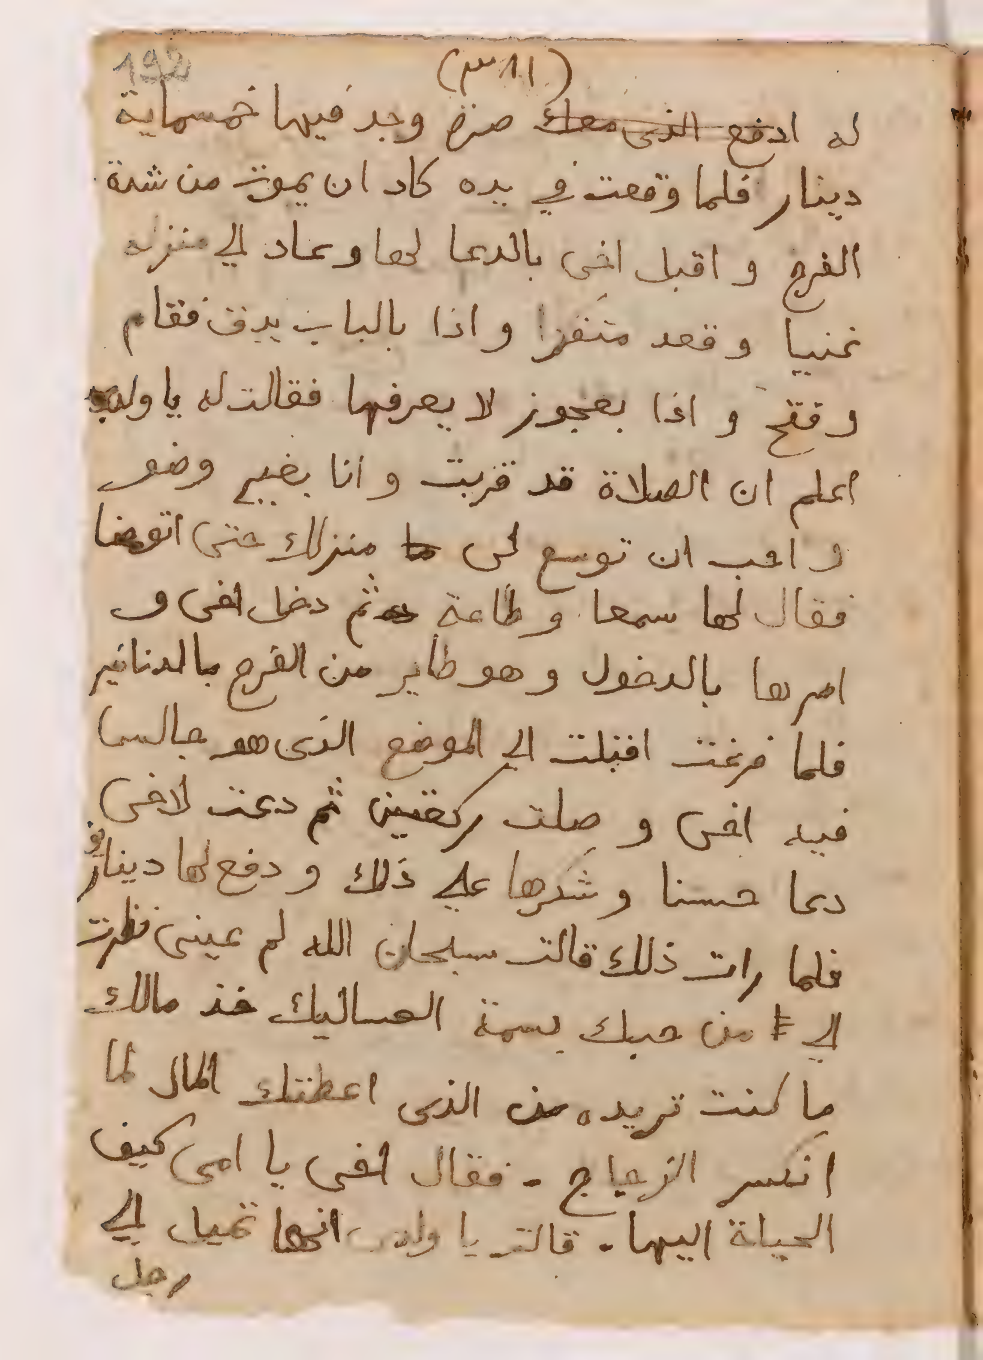 192
(٣١١)
له ادفع الذى معك صرة وجد فيها خمسماية
دينار فلما وقعت في يده كاد ان يموت من شدة
الفرح و اقبل اخى بالدعا لها وعاد الي منزله
غنيا و قعد متفكرا و اذا بالباب يدق فقام
و فتح و اذا بعجوز لا يعرفها فقالت له يا ولدى
اعلم ان الصلاة قد قربت و انا بغير وضو
و احب ان توسع لى منزلك حتى اتوضا
فقال لها سمعا و طاعة ثم دخل اخى و
امرها بالدخول و هو طاير من الفرح بالدنانير
فلما فرغت اقبلت الي الموضع الذى هو جالسا
فيه اخى و صلت ركعتين ثم دعت لاخى
دعا حسنا و شكرها علي ذلك و دفع لها دينارين
فلما رات ذلك قالت سبحان الله لم عينى نظرت
الي من حبك بسمة الصعاليك خذ مالك
ما كنت تريده من الذى اعطتك المال لما
انكسر الزجاج - فقال اخى يا امى كيف
الحيلة اليها - قالت يا ولدى انها تميل الي
رجل